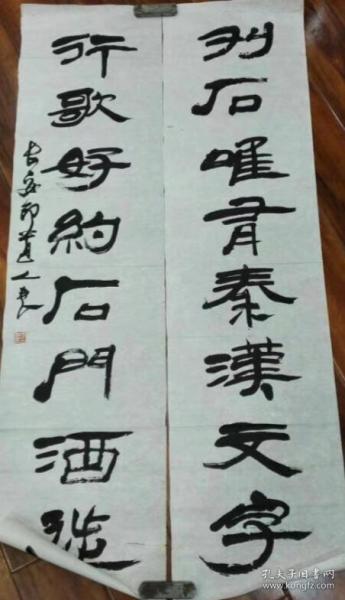 列石唯有秦漢文字
行歌好約石門酒徒
孔夫子旧书网
www.kongfz.com